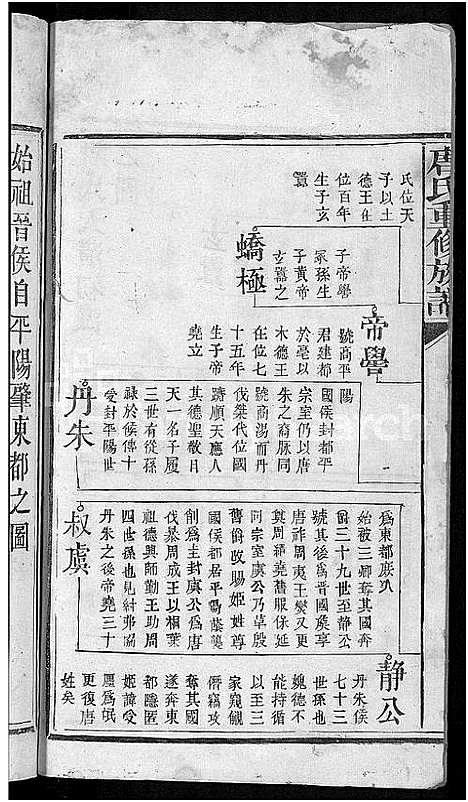 唐氏重修族譜
氏位天
子以土
德王在
位百年
生子玄
囂
蟜極
子帝嚳
冢孫生
子黃帝
玄囂之
帝嚳
號商平
君建都
於亳以
木德王
在位七
十五年
生子帝
堯立
丹朱
陽
國侯封都平
宗室仍以唐
朱之裔脈同
號商湯而丹
伐桀代位國
躋順天應人
其德聖敬日
天一名子履
三世有從孫
祿於侯傳十
受封平陽世
叔虞
為東都庶人
始被三卿奪其國奔
爵三十九世至靜公
號其後為晉國侯享
唐祚周夷王燮又更
與周褅堯舊服俾延
同宗室虞公乃卓殷
舊爵改賜姬姓尊
國侯都居平陽蔭襲
創為主封虞公為唐
伐暴周成王以桐葉
祖德興師勤王助周
四世孫也見紂弗嗣
丹朱之後帝堯三十
靜公
丹朱侯
七十三
世孫也
魏德不
能持循
以至三
家窺覦
僭竊攻
奪其國
遂奔東
都隱匿
姬諱受
廛為氓
更復唐
姓矣
始祖晉侯自平陽肇東都之圖